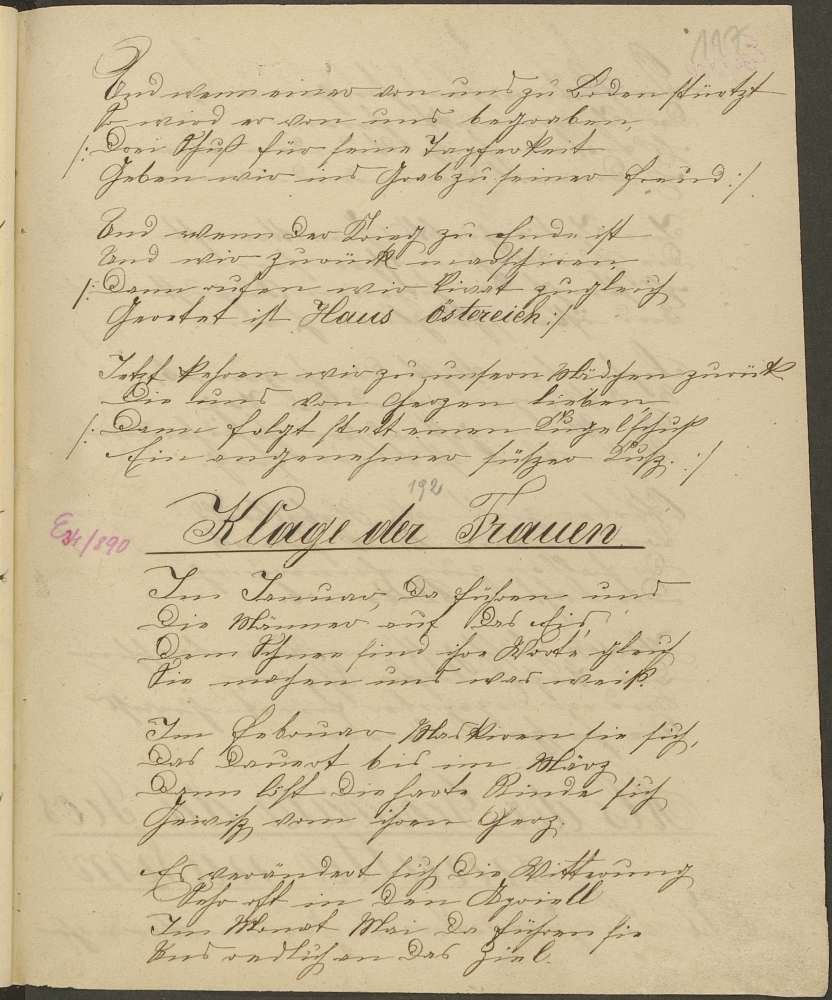 197
Und wenn einer von uns zu Boden stürtzt
So wird er von uns begraben,
/: Drei Schuß für seine Tapferkeit
Geben wir ins Grab zu seiner Freud :/
Und wenn der Krieg zu Ende ist
Und wir zurück marschiren,
/: Dann rufen wir Vivat zugleich
Geretet ist Haus Östereich :/
Jetzt kehren wir zu unsern Mädchen zurück
Die uns von Herzen lieben
/: Dann folgt statt einen Kugelschuß
Ein angenehmer süßer Kuß. :/
192
Klage der Frauen
/890
Im Januar, da führen uns
Die Männer auf das Eis,
Dem Schnee sind ihre Worte gleich
Sie machen uns was weiß.
Im Februar Maskiren sie sich,
Das dauert bis im März
Dann löst die harte Rinde sich
Gewiß vom ihren Herz.
Es verändert sich die Witterung
Sehr oft in den Apriell
Im Monat Mai da führen sie
Uns redlich an das Ziel.